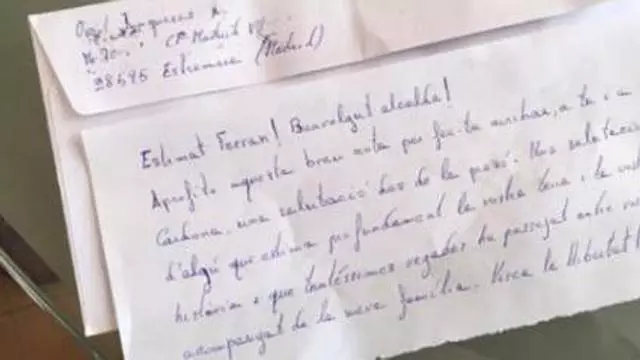 CP Madrid VII
28595 Estremera (Madrid)
Estimat Ferran! Benvolgut alcalde!
Aprofito aquesta breu nota per fer-te arribar, a tu i a
Cardona, una salutació des de la presó. Una salutació
d'algú que estima profundament la vostra terra i la
història i que tantíssimes vegades ha passejat entre
acompanyat de la meva família. Visca la llibertat!